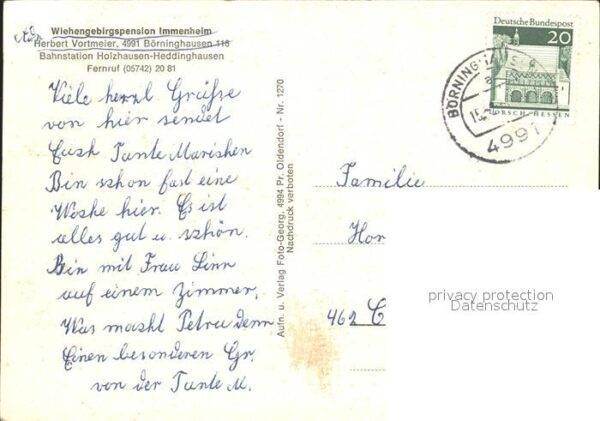 Wiehengebirgspension Immenheim
Herbert Vortmeier, 4991 Börninghausen 116
Bahnstation Holzhausen-Heddinghausen
Fernruf (05742) 20 81
Viele herzl Grüße
von hier sendet
Euch Tante Marichen
Bin schon fast eine
Woche hier. Es ist
alles gut u. schön.
Bin mit Frau Linn
auf einem Zimmer.
Was macht Petra denn
Einen besonderen Gr.
von der Tante M.
Aufn. u. Verlag Foto-Georg, 4994 Pr. Oldendorf - Nr. 1270
Nachdruck verboten
Deutsche Bundespost
20
LORSCH/HESSEN
BÖRNING
4991
Familie
Hor
462 C
privacy protection
Datenschutz